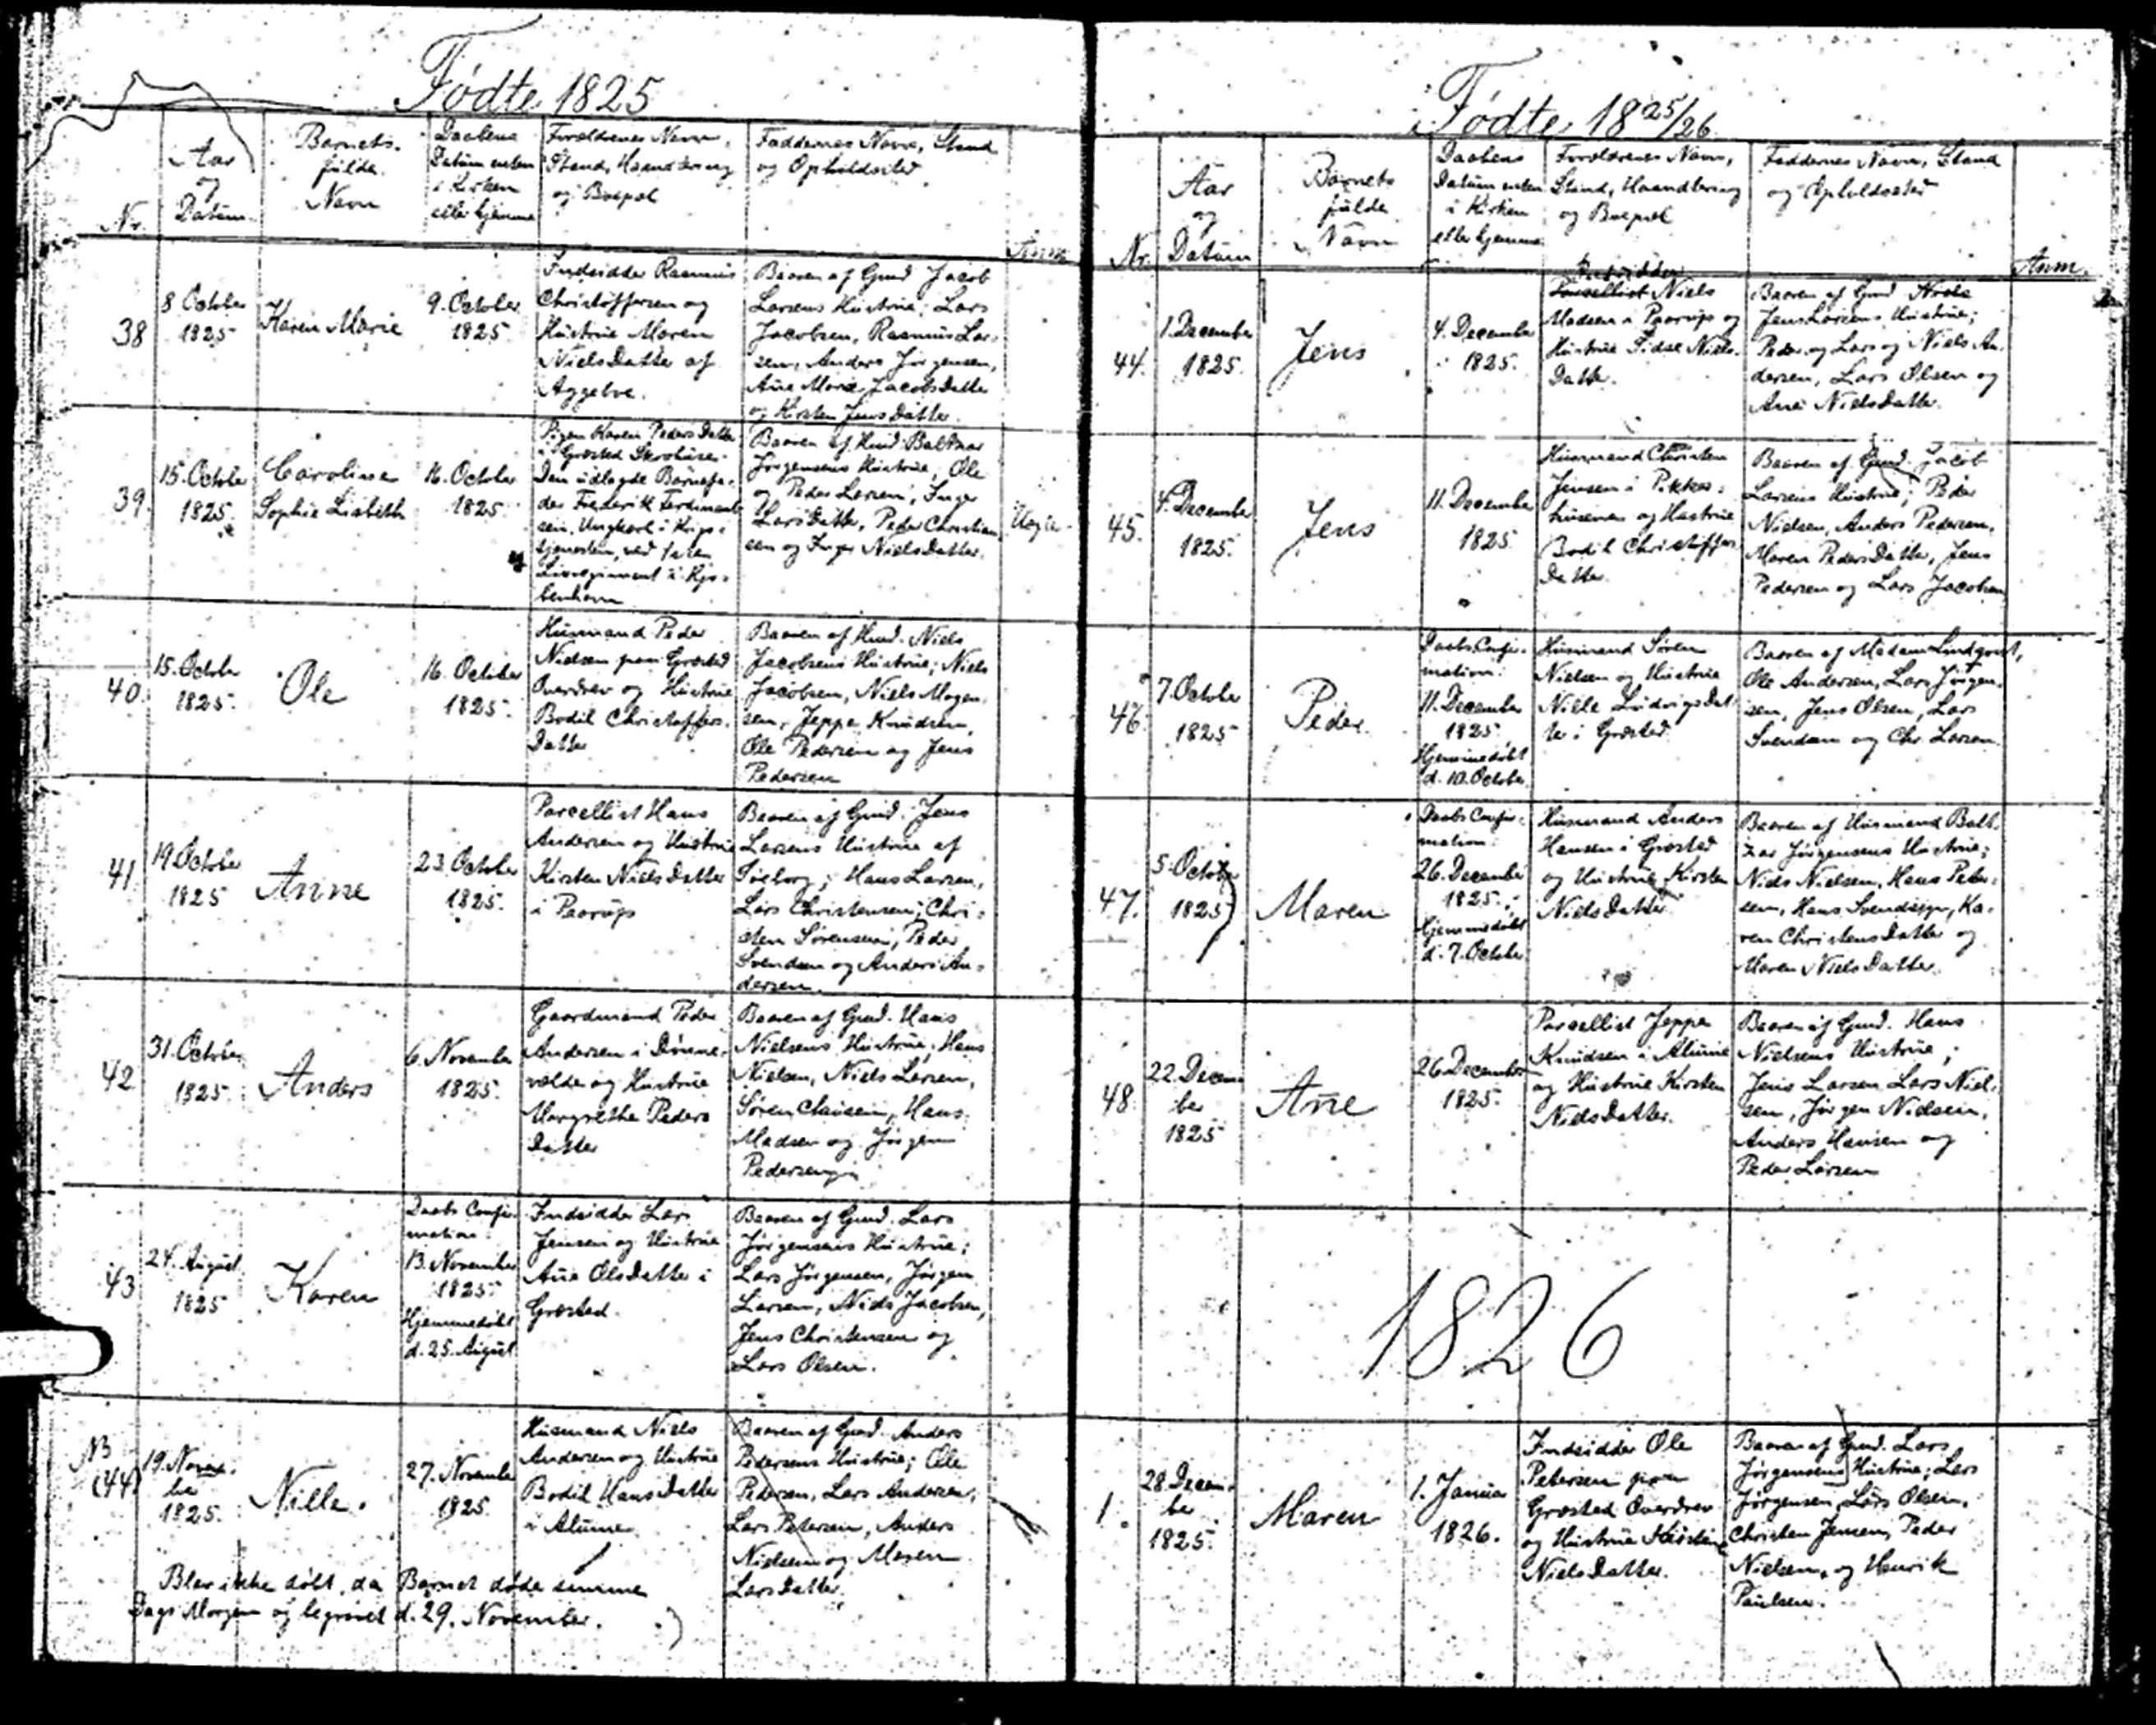 Fødte 1825
Nr.
Aar
og
Datum
Barnets
fulde
Navn
Daabens
Datum enten
i Kirken
eller hjemme
Forældrenes Navn,
Stand, Haandtering
og Bopæl
Faddernes Navn, Stand
og Opholdssted
Anm.
38
8 October
1825
Karen Marie
9. October
1825
Indsidder Rasmus
Christoffersen og
Hustrue Maren
NielsDatter af
Aggebve.
Baaren af Gmd Jacob
Larsens Hustrue; Lars
Jacobsen, Rasmus Lar-
sen, Anders Jørgensen,
Ane Marie JacobsDatter
og Kirsten JensDatter.
39.
15. October
1825.
Caroline
Sophie Lisbeth
16. October
1825.
Pigen Karen PedersDatter
i Græsted Skovhuse.
Den udlagde Barnefa-
der Frederik Ferdinand-
sen, Ungkarl i Krigs-
tjenesten, ved
Livregiment i Kjø-
benhavn
Baaren af Hmd Baltzar
Jørgensens Hustrue, Ole
og Peder Larsen, Inger
LarsDatter, Peder Christian-
sen og Inger NielsDatter.
Uægte
40.
15. October
1825.
Ole
16. October
1825.
Husmand Peder
Nielsen paa Græsted
Overdrev og Hustrue
Bodil Christoffers-
Datter
Baaren af Hmd. Niels
Jacobsens Hustrue; Niels
Jacobsen, Niels Mogen-
sen, Jeppe Knudsen,
Ole Pedersen og Jens
Pedersen
41
19. October
1825
Anne
23. October
1825.
Parcellist Hans
Andersen og Hustrue
Kirsten NielsDatter
i Paarup
Baaren af Gmd. Jens
Larsens Hustrue af
Søeborg; Hans Larsen,
Lars Christensen, Chri-
sten Sørensen, Peder
Svendsen og Anders An-
dersen.
42
31. October
1825.
Anders
6. November
1825.
Gaardmand Peder
Andersen i Dønne-
vælde og Hustrue
Margrethe Peders
Datter
Baaren af Gmd. Hans
Nielsens Hustrue, Hans
Nielsen, Niels Larsen,
Søren Clausen, Hans
Madsen og Jørgen
Pedersen
43
24. August
1825
Karen
Daabs Confir-
mation
13. November
1825.
Hjemmedøbt
d. 25. August
Indsidder Lars
Jensen og Hustrue
Ane OlsDatter i
Græsted.
Baaren af Gmd. Lars
Jørgensens Hustrue;
Lars Jørgensen, Jørgen
Larsen, Niels Jacobsen,
Jens Christensen og
Lars Olsen.
NB
(44)
19. Novem-
ber
1825.
Nille.
27. November
1825
Husmand Niels
Andersen og Hustrue
Bodil HansDatter
i Alume
Baaren af Gmd. Anders
Pedersens Hustrue; Ole
Pedersen, Lars Andersen,
Lars Petersen, Anders
Nielsen og Maren
LarsDatter.
Blev ikke døbt, da Barnet døde samme
Dags Morgen og begravet d. 29. November.
Fødte 1825/26
Nr.
Aar
og
Datum
Barnets
fulde
Navn
Daabens
Datum enten
i Kirken
eller hjemme
Forældrenes Navn,
Stand, Haandtering
og Bopæl
Faddernes Navn, Stand
og Opholdssted
Anm.
44.
1. December
1825.
Jens
4. December
1825.
Indsidder
Parcellist Niels
Madsen i Paarup og
Hustrue Sidse Niels-
Datter.
Baaren af Gmd
Jens Larsens Hustrue;
Peder og Lars og Niels An-
dersen, Lars Olsen og
Ane NielsDatter.
45.
4. December
1825.
Jens
11. December
1825.
Husmand Christen
Jensen i Pikker-
husene og Hustrue
Bodil Christoffers
Datter.
Baaren af Gmd. Jacob
Larsens Hustrue; Peder
Nielsen, Anders Pedersen,
Maren PedersDatter, Jens
Pedersen og Lars Jacobsen
46.
7. October
1825
Peder
Daabs Confir-
mation.
11. December
1825.
Hjemmedøbt
d. 10. October
Husmand Søren
Nielsen og Hustrue
Nille LudvigsDat-
ter i Græsted.
Baaren af Madam Lindqvist,
Ole Andersen, Lars Jørgen-
sen, Jens Olsen, Lars
Svendsen og Chr. Larsen.
47.
5. October
1825
Maren
Daabs Confir-
mation.
26. December
1825.
Hjemmedøbt
d. 7. October
Husmand Anders
Hansen i Græsted
og Hustrue Kirsten
NielsDatter
Baaren af Husmand Balt-
zar Jørgensens Hustrue;
Niels Nielsen, Hans Peter-
sen, Hans Svendsen, Ka-
ren ChristensDatter og
Maren NielsDatter.
48.
22. Decem-
ber
1825
Ane
26. December
1825.
Parcellist Jeppe
Knudsen i Alume
og Hustrue Kirsten
NielsDatter.
Baaren af Gmd. Hans
Nielsens Hustrue;
Jens Larsen, Lars Niel-
sen, Jørgen Nielsen,
Anders Hansen og
Peder Larsen
1826
1.
28. Decem-
ber
1825.
Maren
1. Januar
1826.
Indsidder Ole
Petersen paa
Græsted Overdrev
og Hustrue Kirsten
NielsDatter.
Baaren af Gmd. Lars
Jørgensens Hustrue; Lars
Jørgensen, Lars Olsen,
Christen Jensen, Peder
Nielsen, og Henrik
Paulsen.